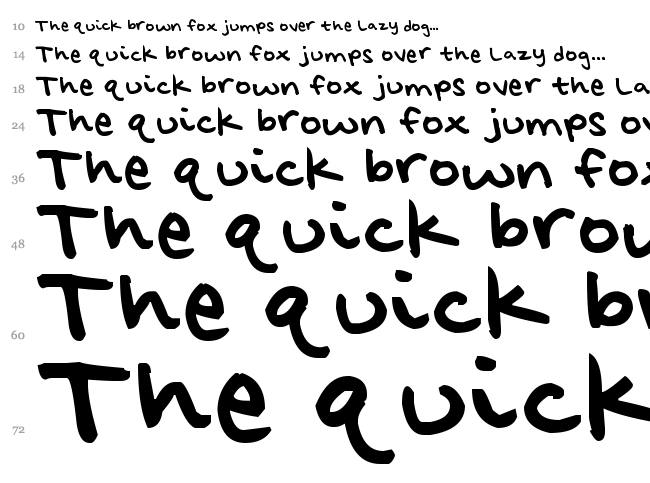 10 The quick brown fox jumps over the Lazy dog...
14 The quick brown fox jumps over the Lazy dog...
18 The quick brown fox jumps over the La
24 The quick brown fox jumps ov
36 The quick brown fox
48 The quick brou
60 The quick br
72 The quick